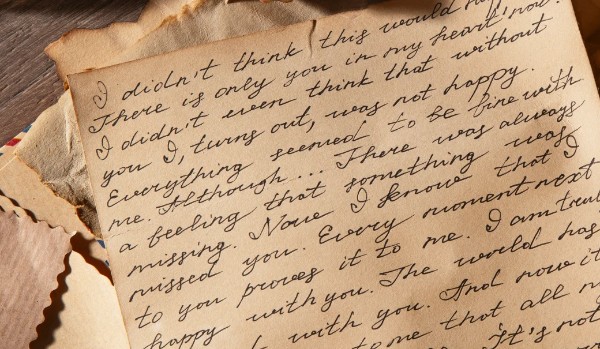 I didn't think this would
There is only you in my heart now.
I didn't even think that without
you I, turns out, was not happy.
Everything seemed to be fine with
me. Although... There was always
a feeling that something was
missing. Now I know that I
missed you. Every moment next
to you proves it to me. I am
happy with you. The world has
with you. And now it
to me that all
It's not